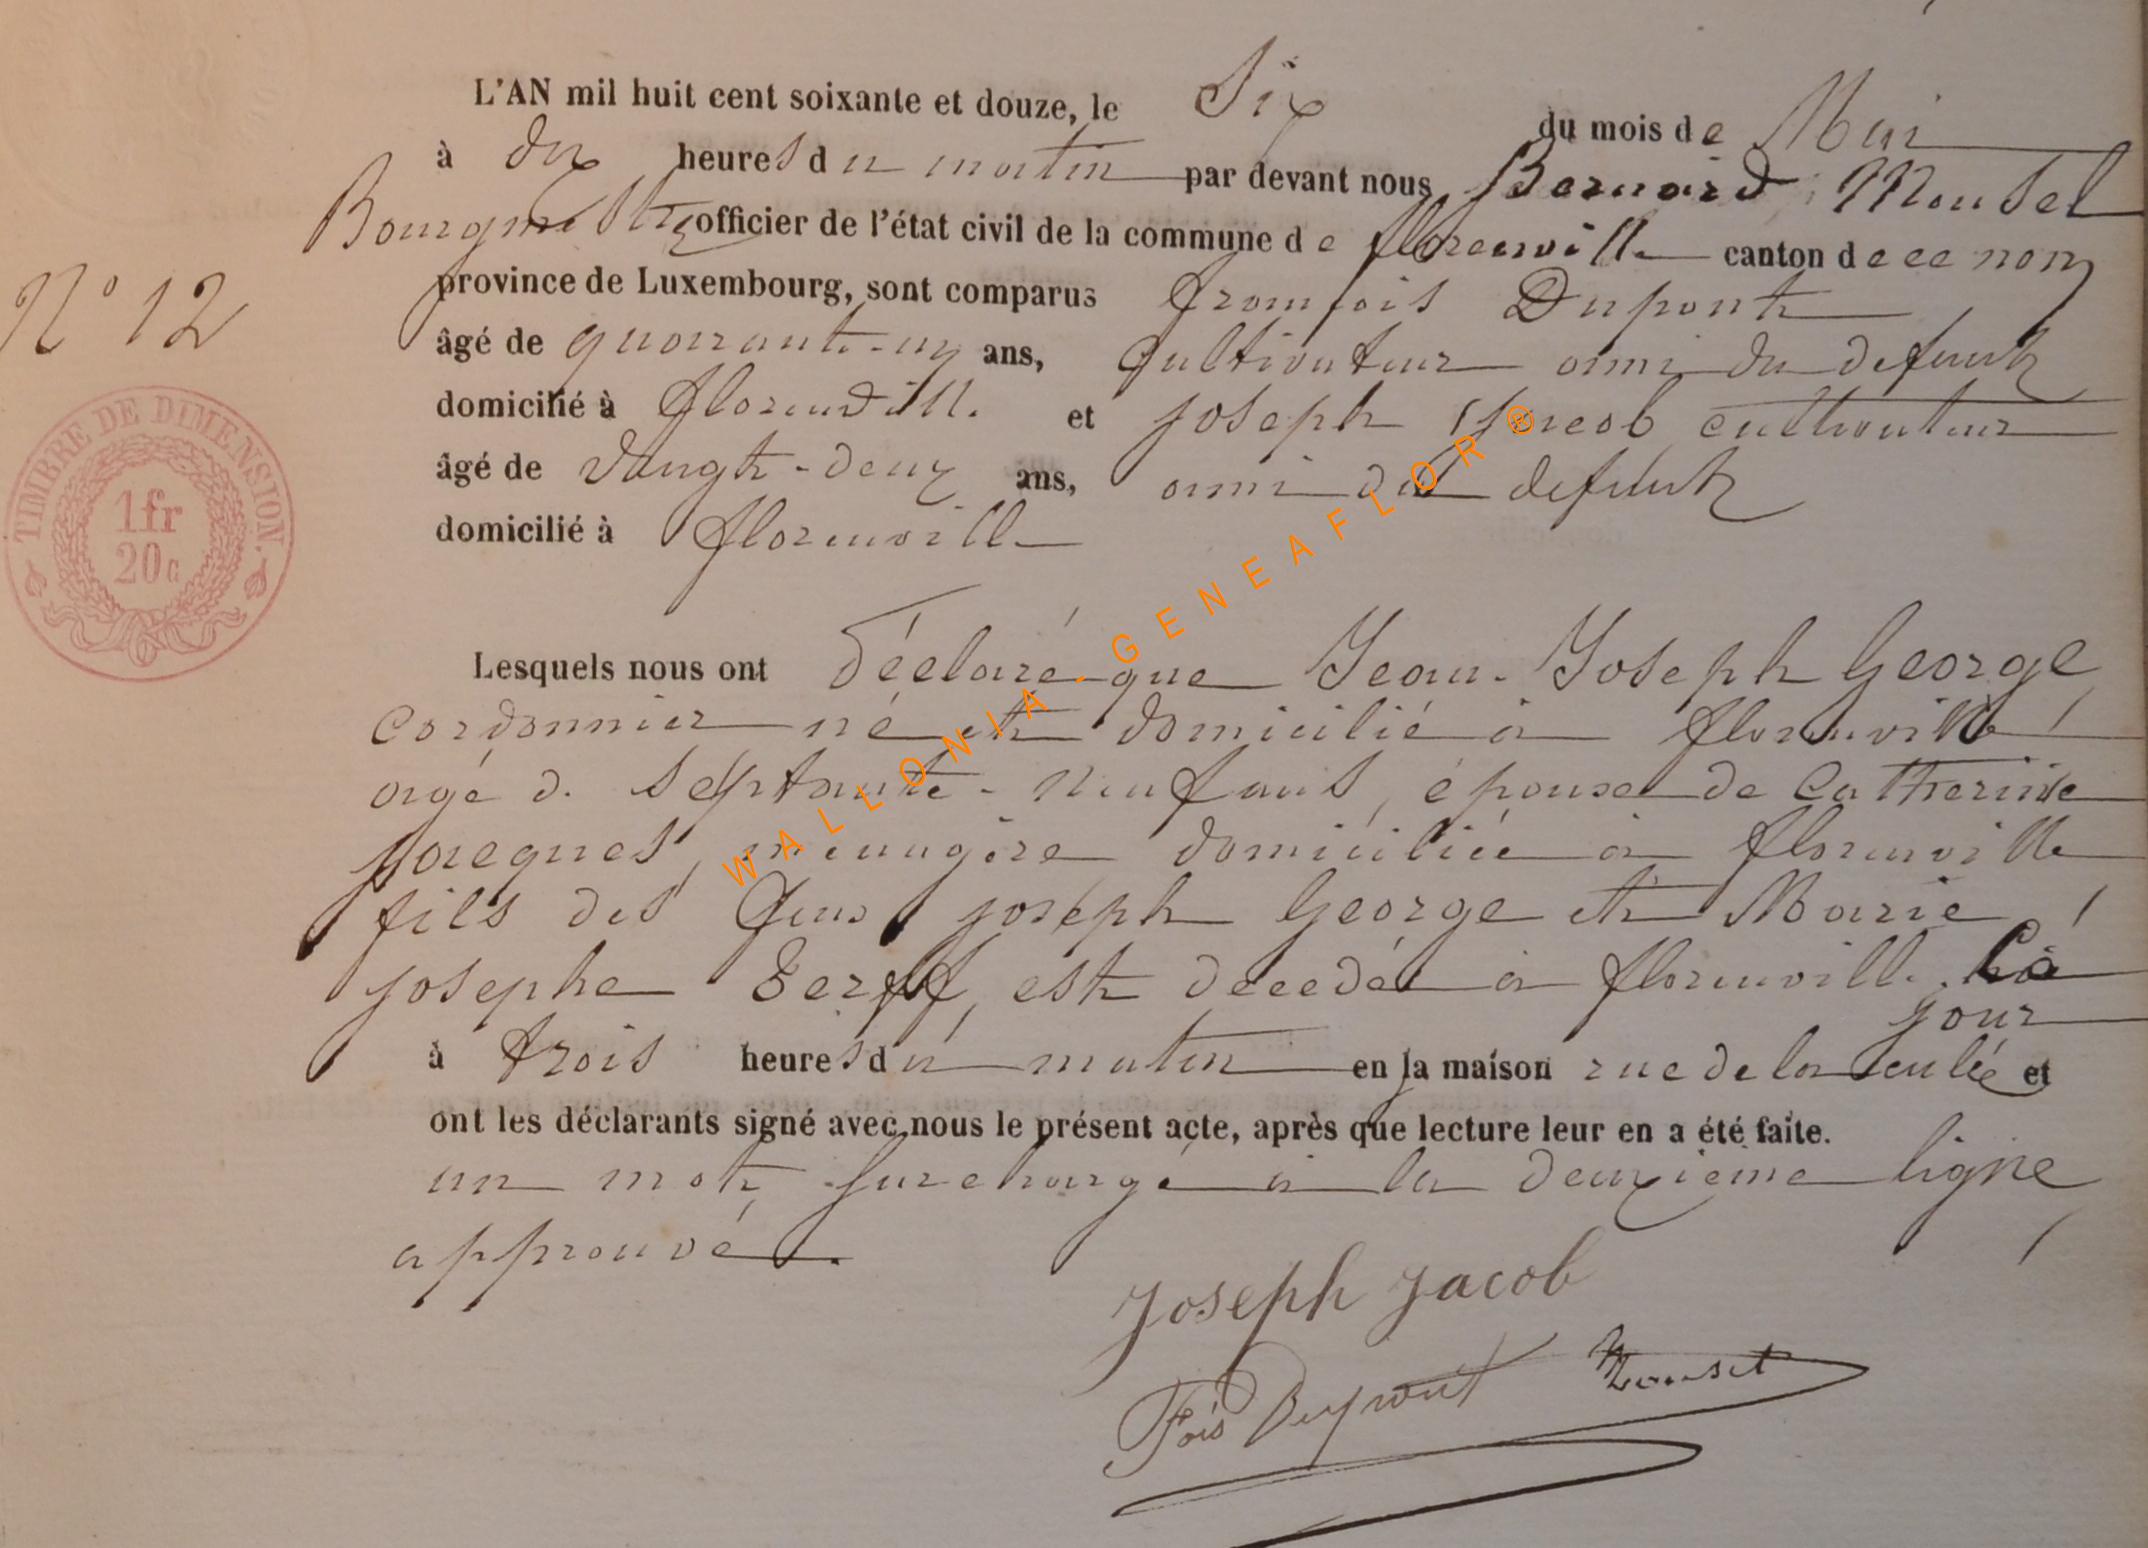 L'AN mil huit cent soixante et douze, le Six du mois de Mai
à dix heures du matin par devant nous Bernard Mousel
Bourgmestre officier de l'état civil de la commune de florenville canton de ce nom
N° 12
province de Luxembourg, sont comparus françois Dupont
âgé de quarante-un ans, Cultivateur ami du defunt
domicilié à florenville et joseph jacob cultivateur
âgé de vingt-deux ans, ami du defunt
domicilié à florenville
TIMBRE DE DIMENSION.
1fr
20c
Lesquels nous ont déclaré que Jean-Joseph George
cordonnier né et domicilié à florenville
agé de septante-neuf ans, époux de Catherine
jacques, ménagère domiciliée à florenville
fils des feus joseph George et Marie
josephe est decedé à florenville, Ce
jour
à trois heures du matin en la maison rue de la culée et
ont les déclarants signé avec nous le présent acte, après que lecture leur en a été faite.
un mot surchargé à la deuxieme ligne
approuvé.
Joseph Jacob
Fois Dupont Mousel
WALLONIA - GENEAFLOR ®